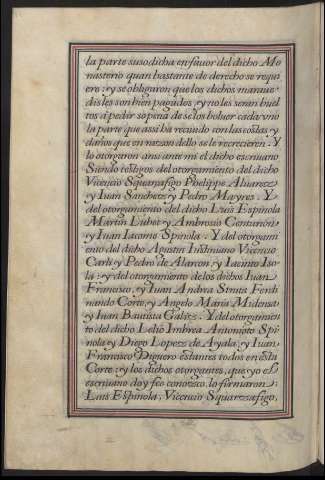 la parte susodicha en fauor del dicho Mo
nasterio quan bastante de derecho se requi
ere: y se obligaron que los dichos maraue
dis les son bien pagados, y no les seran buel
tos a pedir so pena de se los boluer cada vno
la parte que assi ha reciuido con las costas y
daños que en razon dello se le recrecieren. Y
lo otorgaron ans ante mi el dicho escriuano
Siendo testigos del otorgamiento del dicho
Vicencio Squarzafigo Phelippe Aluarez
y Iuan Sanchez y Pedro Mayres. Y
del otorgamiento del dicho Luis Espinola
Martin Lubet y Ambrosio Centurion
y Iuan Iacome Spinola. Y del otorgami
ento del dicho Agustin Iustiniano Vicencio
Carli y Pedro de Alarcon, y Iacinto Iso
la: y del otorgamiento de los dichos Iuan
Francisco, y Iuan Andrea Ferdi
nando Corte, y Angelo Maria
y Iuan Bautista Galeze. Y del otorgamien
to del dicho Lelio Imbrea Antonioto Spi
nola, y Diego Lopez de Ayala, y Iuan
Francisco Diguero estantes todos en esta
Corte: y los dichos otorgantes, que yo el
escriuano doy feê conozco, lo firmaron:
Luis Espinola, Vicencio Squarzafigo,